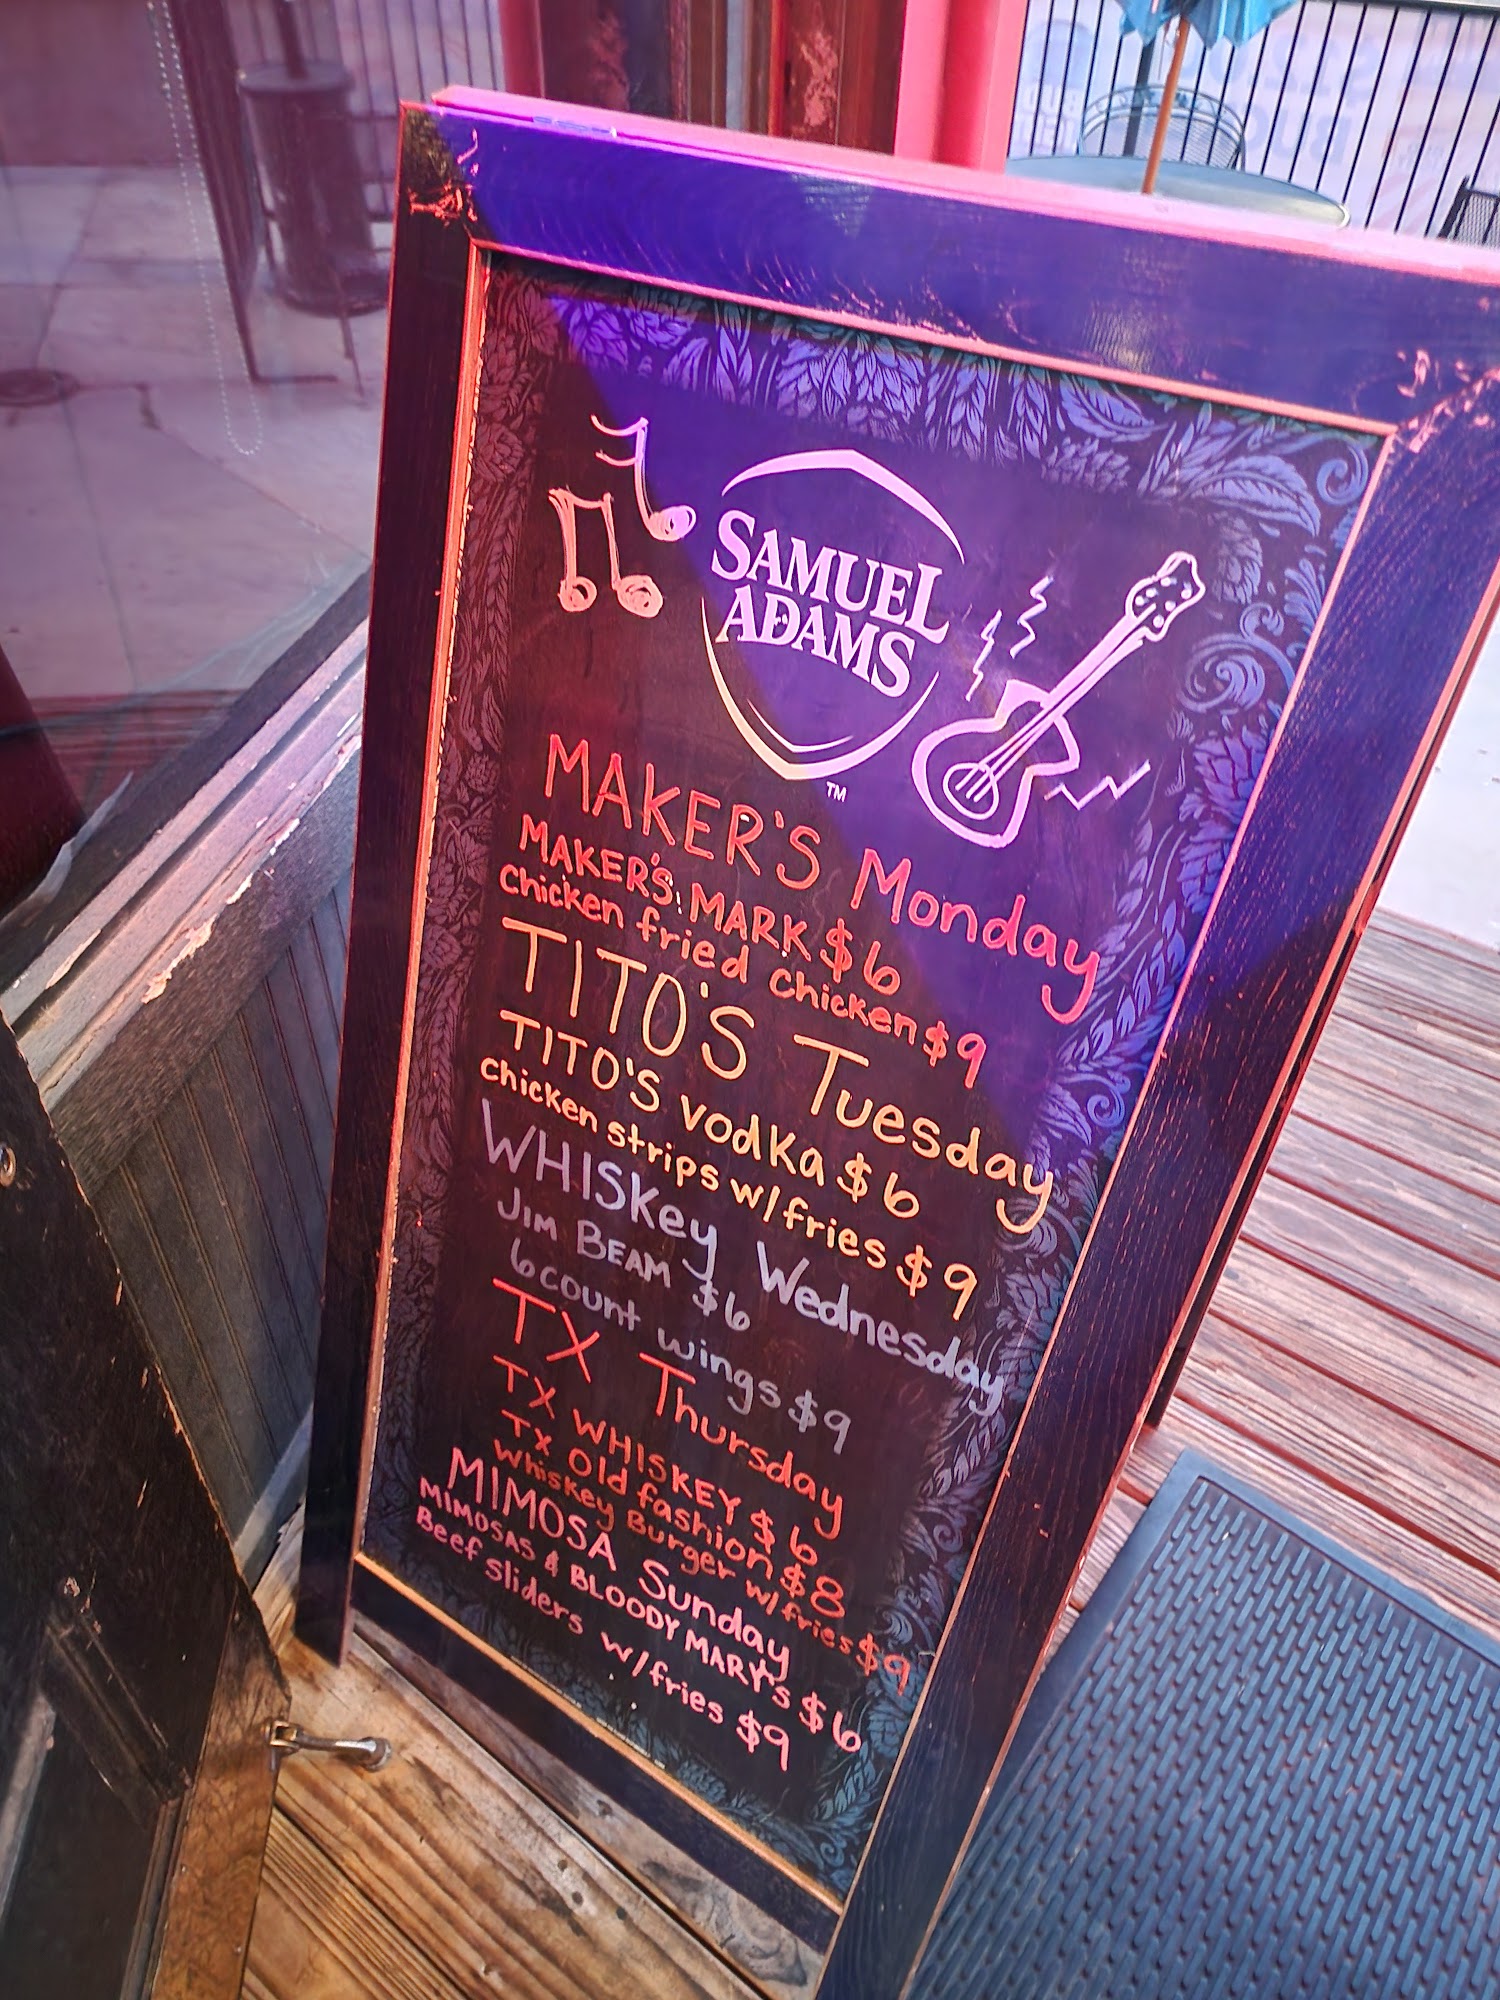 SAMUEL
ADAMS
TM
MAKER'S Monday
MAKER'S MARK $6
chicken fried chicken $9
TITO'S Tuesday
TITO'S vodka $6
chicken strips w/fries $9
WHISKey Wednesday
JIM BEAM $6
6count wings $9
TX Thursday
TX WHISKEY $6
TX Old fashion $8
Whiskey Burger w/fries $9
MIMOSA Sunday
MIMOSAS & BLOODY MARY'S $6
Beef sliders w/fries $9